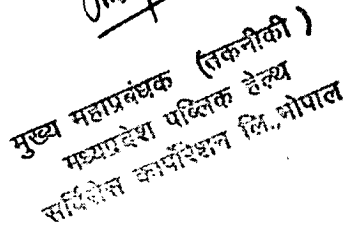 मुख्य महाप्रबंधक (तकनीकी)
मध्यप्रदेश पब्लिक हेल्थ
सर्विसेस कार्पोरेशन लि.,भोपाल